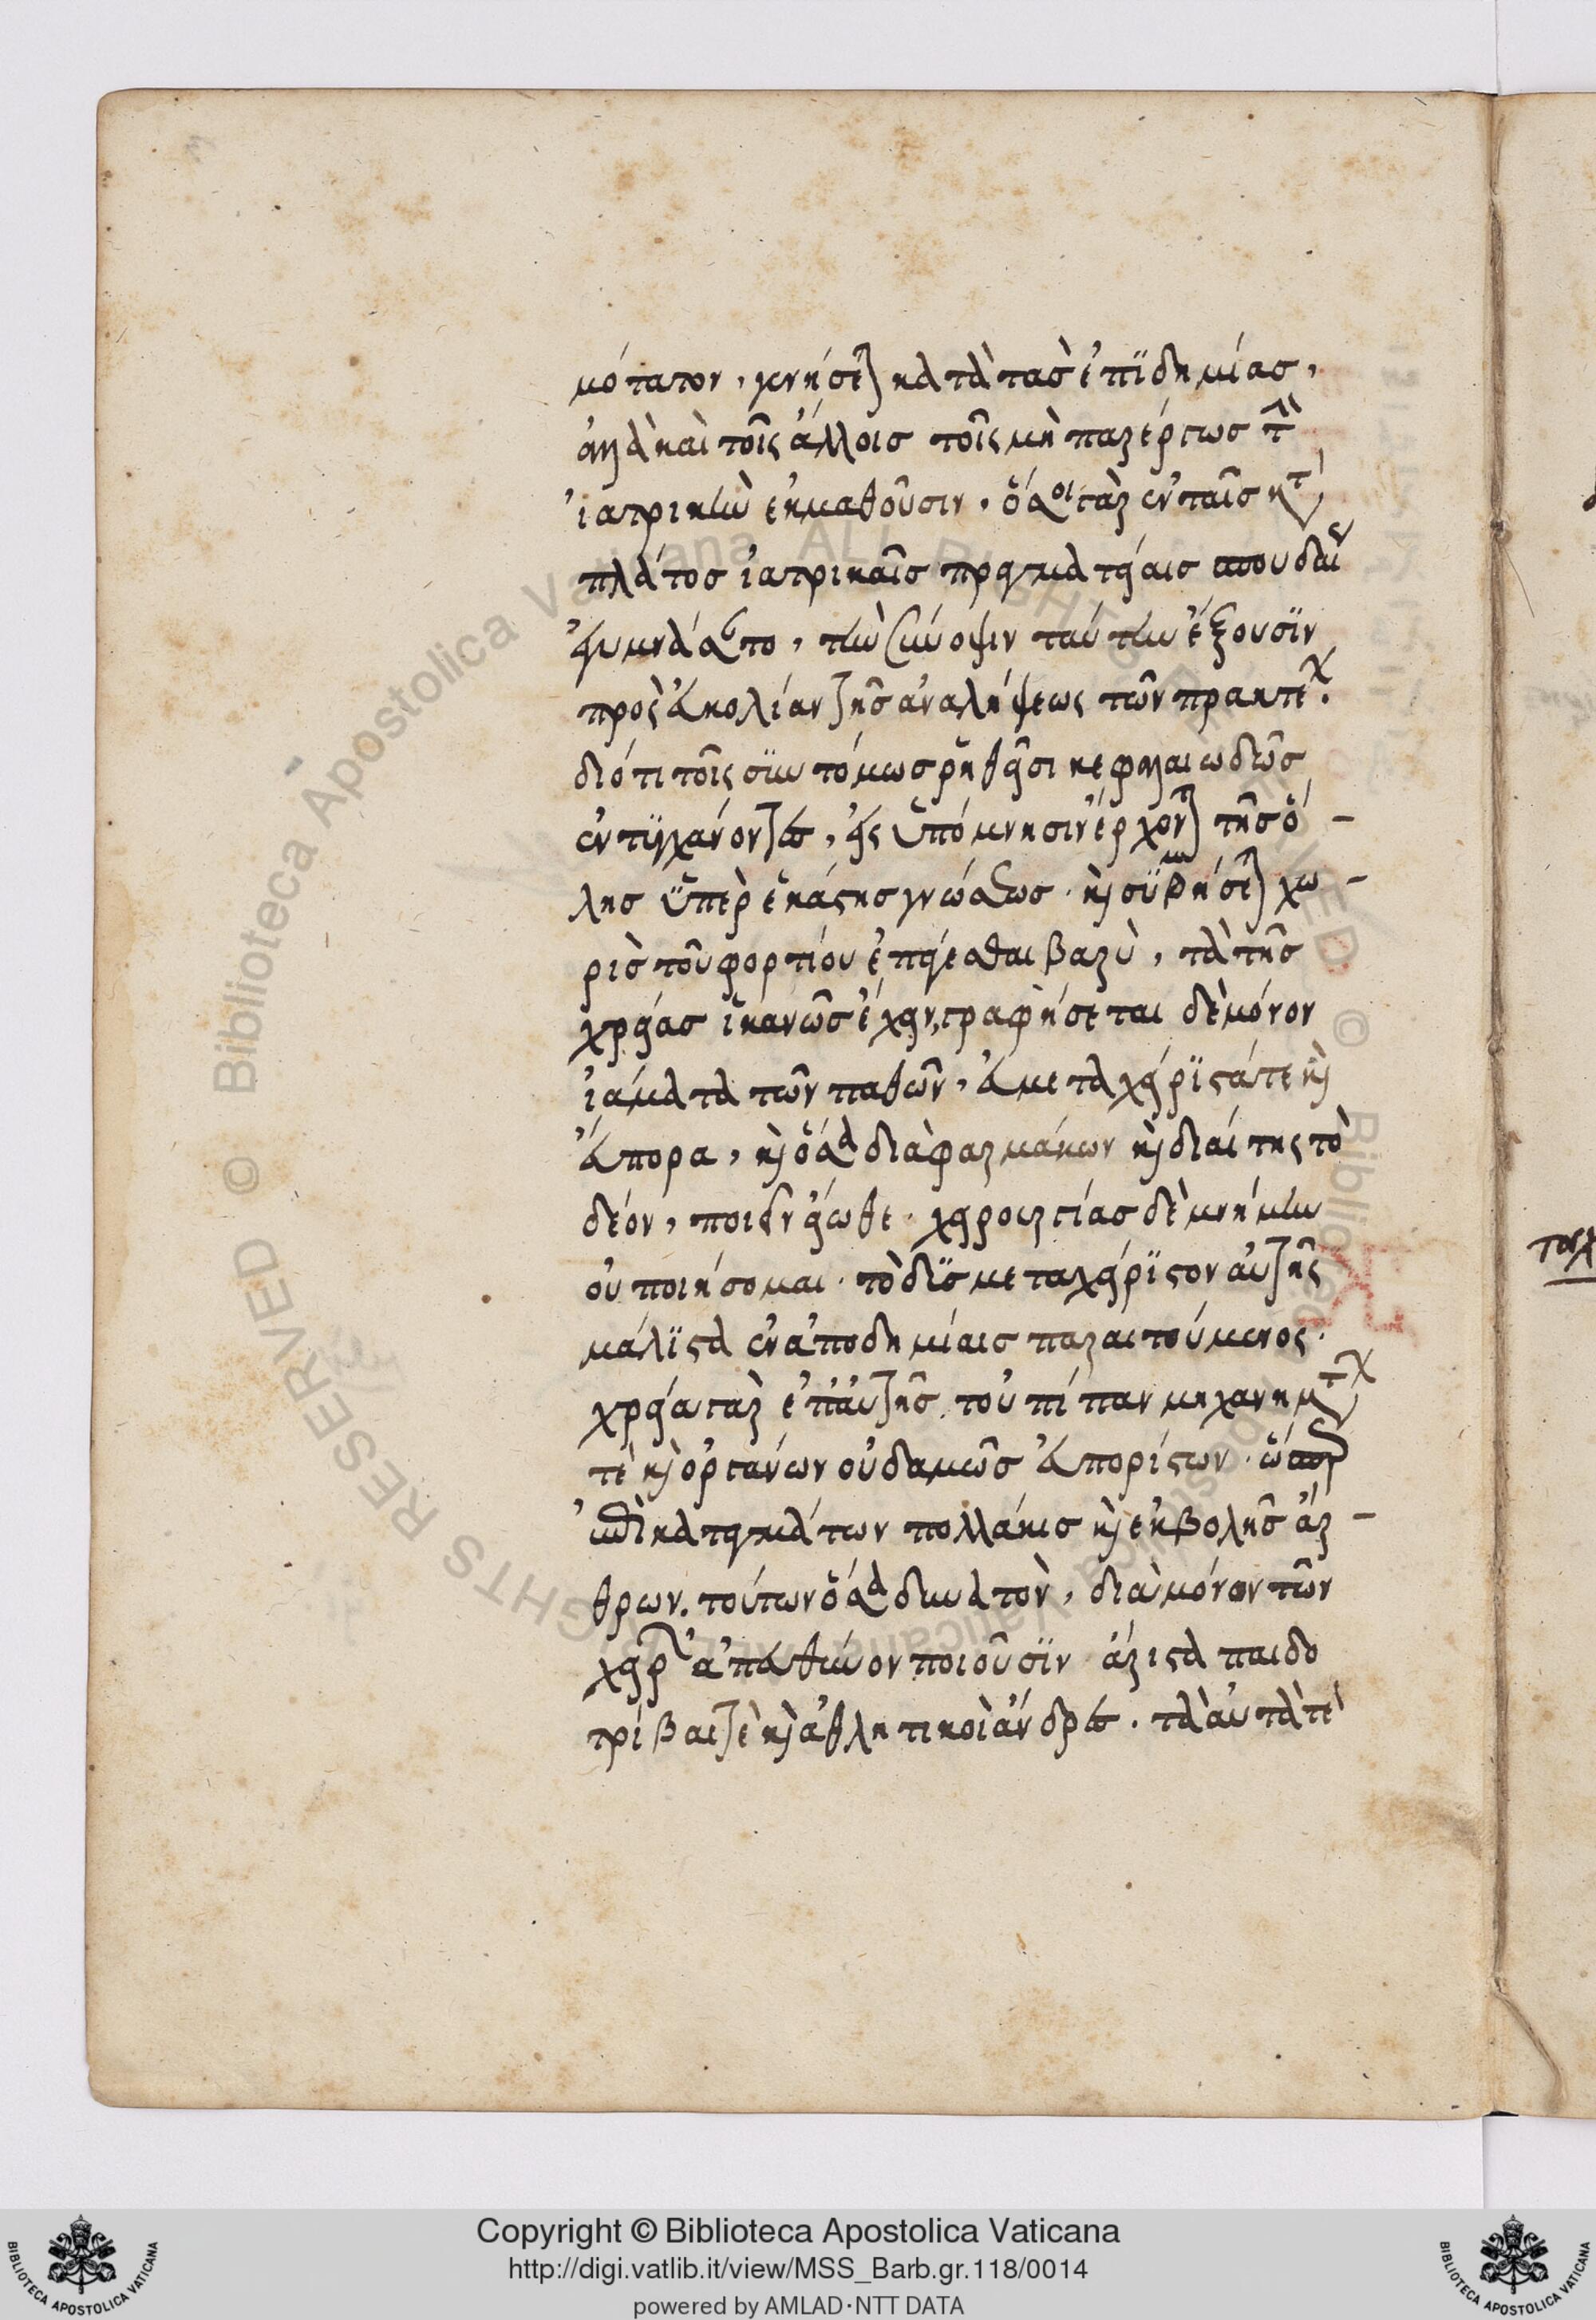 μότατον, γενήσεται κατὰ τὰς ἐπϊδημίας,
ἀλλὰ καὶ τοῖς ἄλλοισ τοῖς μὴ παρέργωσ τὴν
ἰατρικὴν ἐκμαθοῦσιν. ὅσοι γὰρ ἐν ταῖσ κατὰ
πλάτοσ ἰατρικαῖσ πραγματείαισ σπουδαίως
ἐγυμνάσαντο, τὴν σύνοψιν ταύτην ἕξουσϊν
πρὸς εὐκολίαν τῆσ ἀναλήψεως τῶν πρακτέων.
διότι τοῖς συντόμωσ ῥηθεῖσι κεφαλαιωδῶσ
ἐντυγχάνοντες, εἰς ὑπόμνησιν ἔρχονται τῆσ ὅ-
λησ ὑπὲρ ἑκάστησ γνώσεωσ. καὶ συμβήσεται χω-
ρὶσ τοῦ φορτίου ἐπάγεσθαι βαρὺ, τὰ τῆσ
χρείασ ἱκανῶσ ἔχειν, γραφήσεται δὲ μόνον
ἰάματα τῶν παθῶν, εὐμεταχείρϊστά τε καὶ
εὔπορα, καὶ ὅσα διὰ φαρμάκων καὶ διαίτης τὸ
δέον, ποιεῖν εἴωθε. χειρουργίασ δὲ μνήμην
οὐ ποιήσομαι. τὸ δυσμεταχείρϊστον αὐτῆς
μάλϊστα ἐν ἀποδημίαισ παραιτούμενος.
χρεία γὰρ ἐπ' αὐτῆσ. τοὐπίπαν μηχανημάτων
τὲ καὶ ὀργάνων οὐδαμῶσ εὐπορίστων. ὥσπερ
ἐπὶ καταγμάτων πολλάκισ καὶ ἐκβολῆσ ἄρ-
θρων. τούτων ὅσα δυνατὸν, διὰ μόνον τῶν
χειρῶν εὐπαθὴν ὂν ποιοῦσϊν ἄριστα παιδο
τρίβαι τὲ καὶ ἀθλητικοὶ ἄνδρες. τὰ αὐτὰ τὲ
Copyright © Biblioteca Apostolica Vaticana
http://digi.vatlib.it/view/MSS_Barb.gr.118/0014
powered by AMLAD·NTT DATA